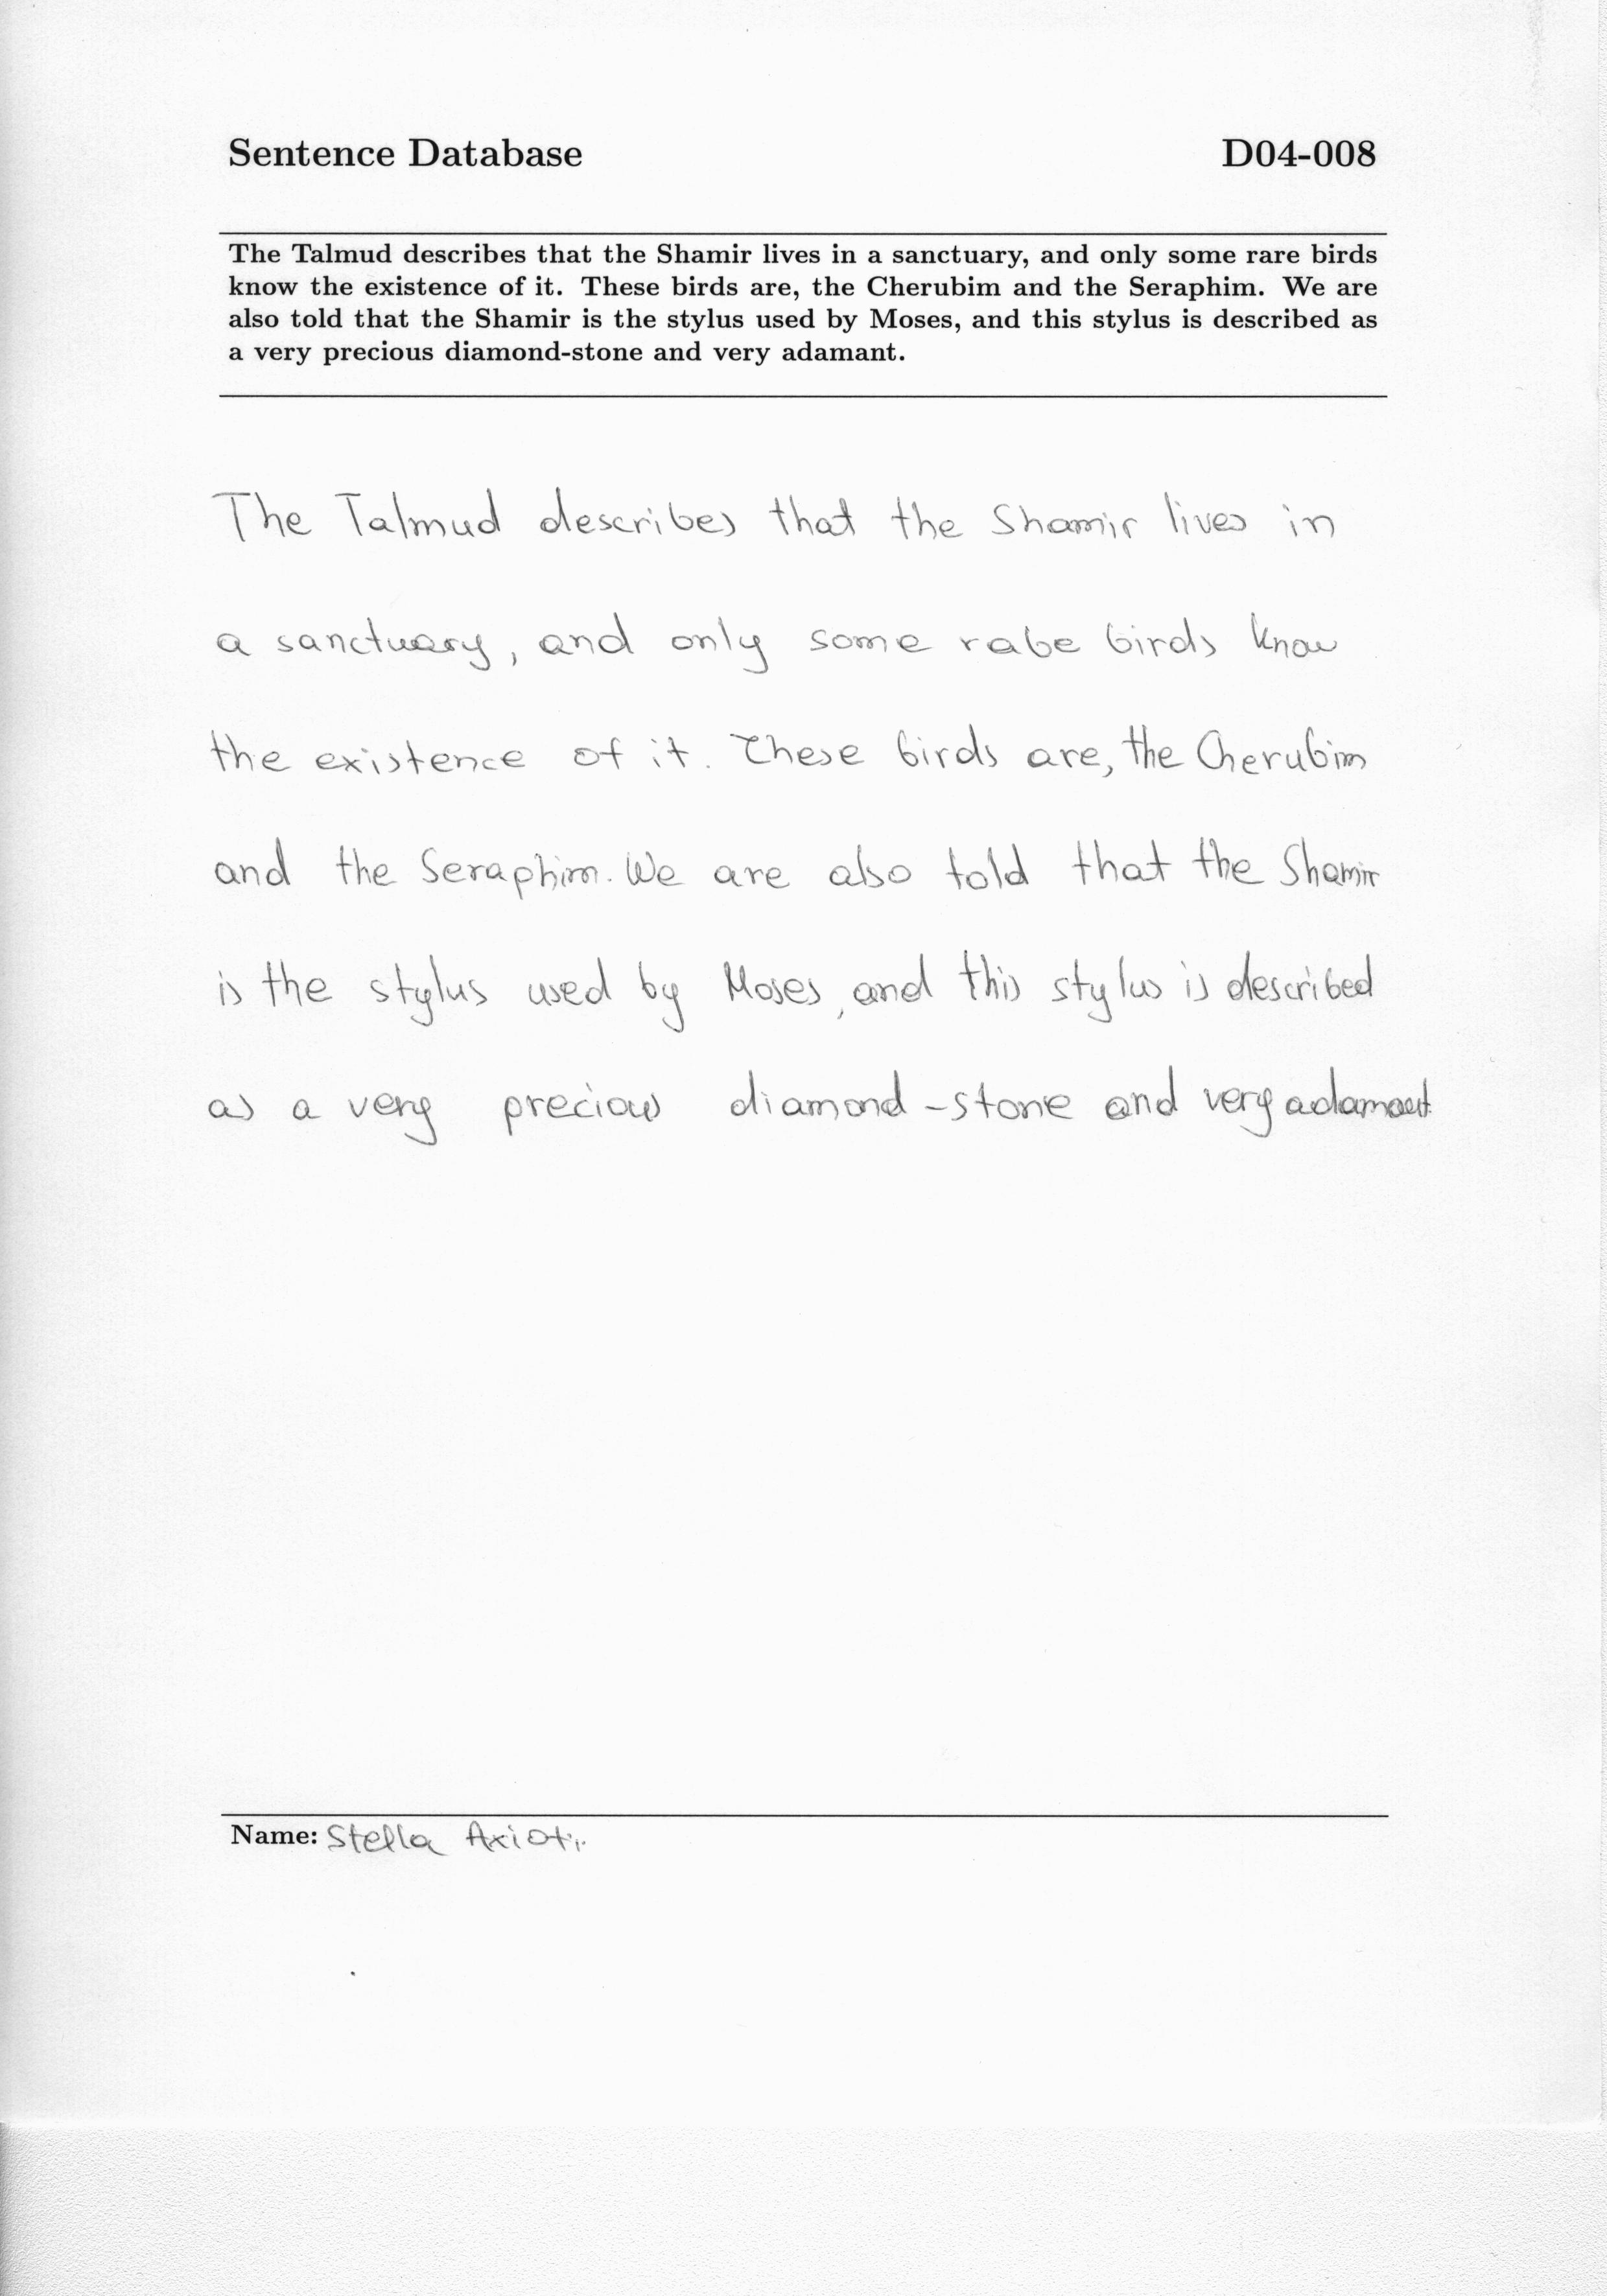 Sentence Database D04-008
The Talmud describes that the Shamir lives in a sanctuary, and only some rare birds
know the existence of it. These birds are, the Cherubim and the Seraphim. We are
also told that the Shamir is the stylus used by Moses, and this stylus is described as
a very precious diamond-stone and very adamant.
The Talmud describes that the Shamir lives in
a sanctuary, and only some rabe birds know
the existence of it. These birds are, the Cherubim
and the Seraphim. We are also told that the Shamir
is the stylus used by Moses, and this stylus is described
as a very precious diamond-stone and very adamant.
Name: Stella Axioti